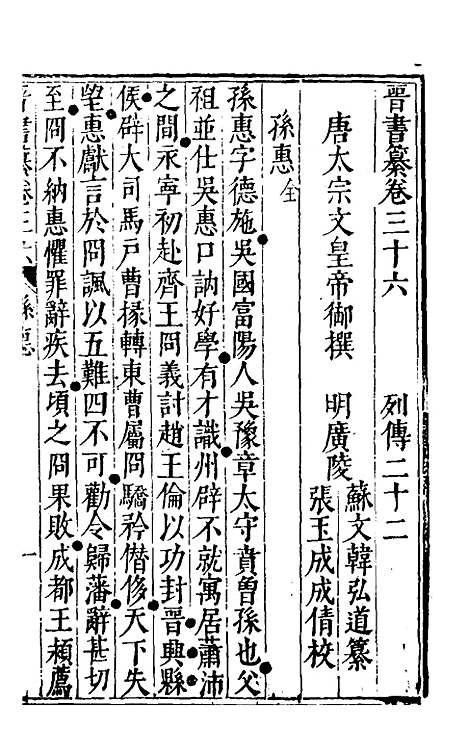 晉書纂卷三十六　列傳二十二
唐太宗文皇帝御撰　明廣陵
蘇文韓弘道纂
張玉成成倩校
孫惠全
孫惠字德施吳國富陽人吳豫章太守賁曾孫也父
祖並仕吳惠口訥好學有才識州辟不就寓居蕭沛
之間永寧初赴齊王冏義討趙王倫以功封晉興縣
侯辟大司馬戸曹掾轉東曹屬冏驕矜僭侈天下失
望惠獻言於冏諷以五難四不可勸令歸藩辭甚切
至冏不納惠懼罪辭疾去頃之冏果敗成都王頴薦
晉書纂卷三六　孫惠　一